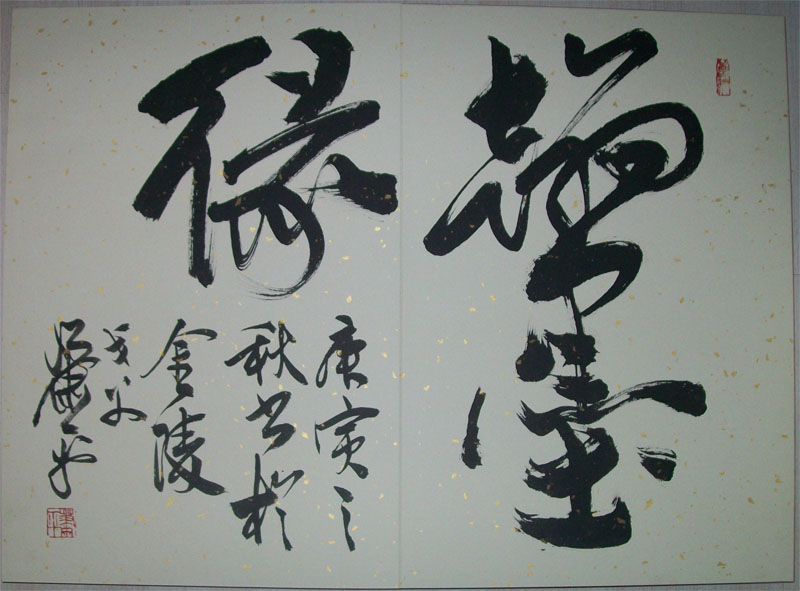 翰墨
缘
庚寅之
秋书於
金陵